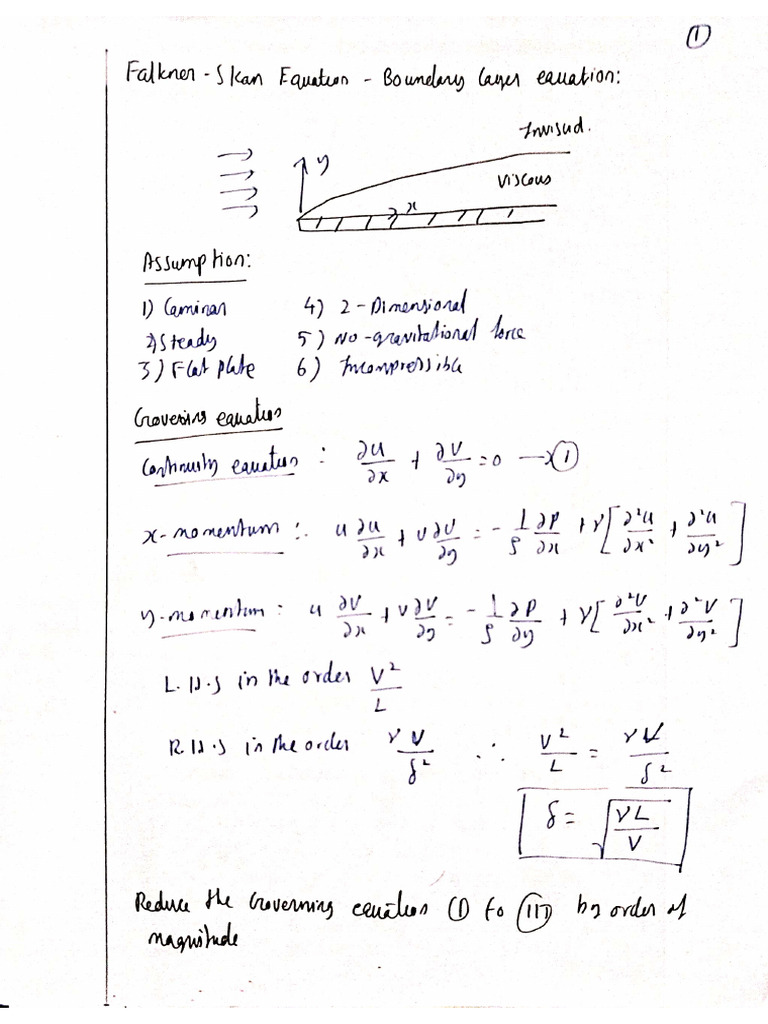 ①
Falkner - Skan Equation - Boundary layer equation:
Inviscid.
y
Viscous
x
Assumption:
1) Laminar 4) 2-Dimensional
2) Steady 5) No-gravitational force
3) Flat plate 6) Incompressible
Governing equation
Continuity equation : ∂u/∂x + ∂v/∂y = 0 → ①
x-momentum :. u ∂u/∂x + v ∂v/∂y = - 1/ρ ∂P/∂x + ν[∂²u/∂x² + ∂²u/∂y²]
y-momentum : u ∂v/∂x + v ∂v/∂y = - 1/ρ ∂P/∂y + ν[∂²v/∂x² + ∂²v/∂y²]
L.H.S in the order V²/L
R.H.S in the order νV/δ² ∴ V²/L = νV/δ²
δ = √(νL/V)
Reduce the Governing equation ① to ⅲ by order of
magnitude